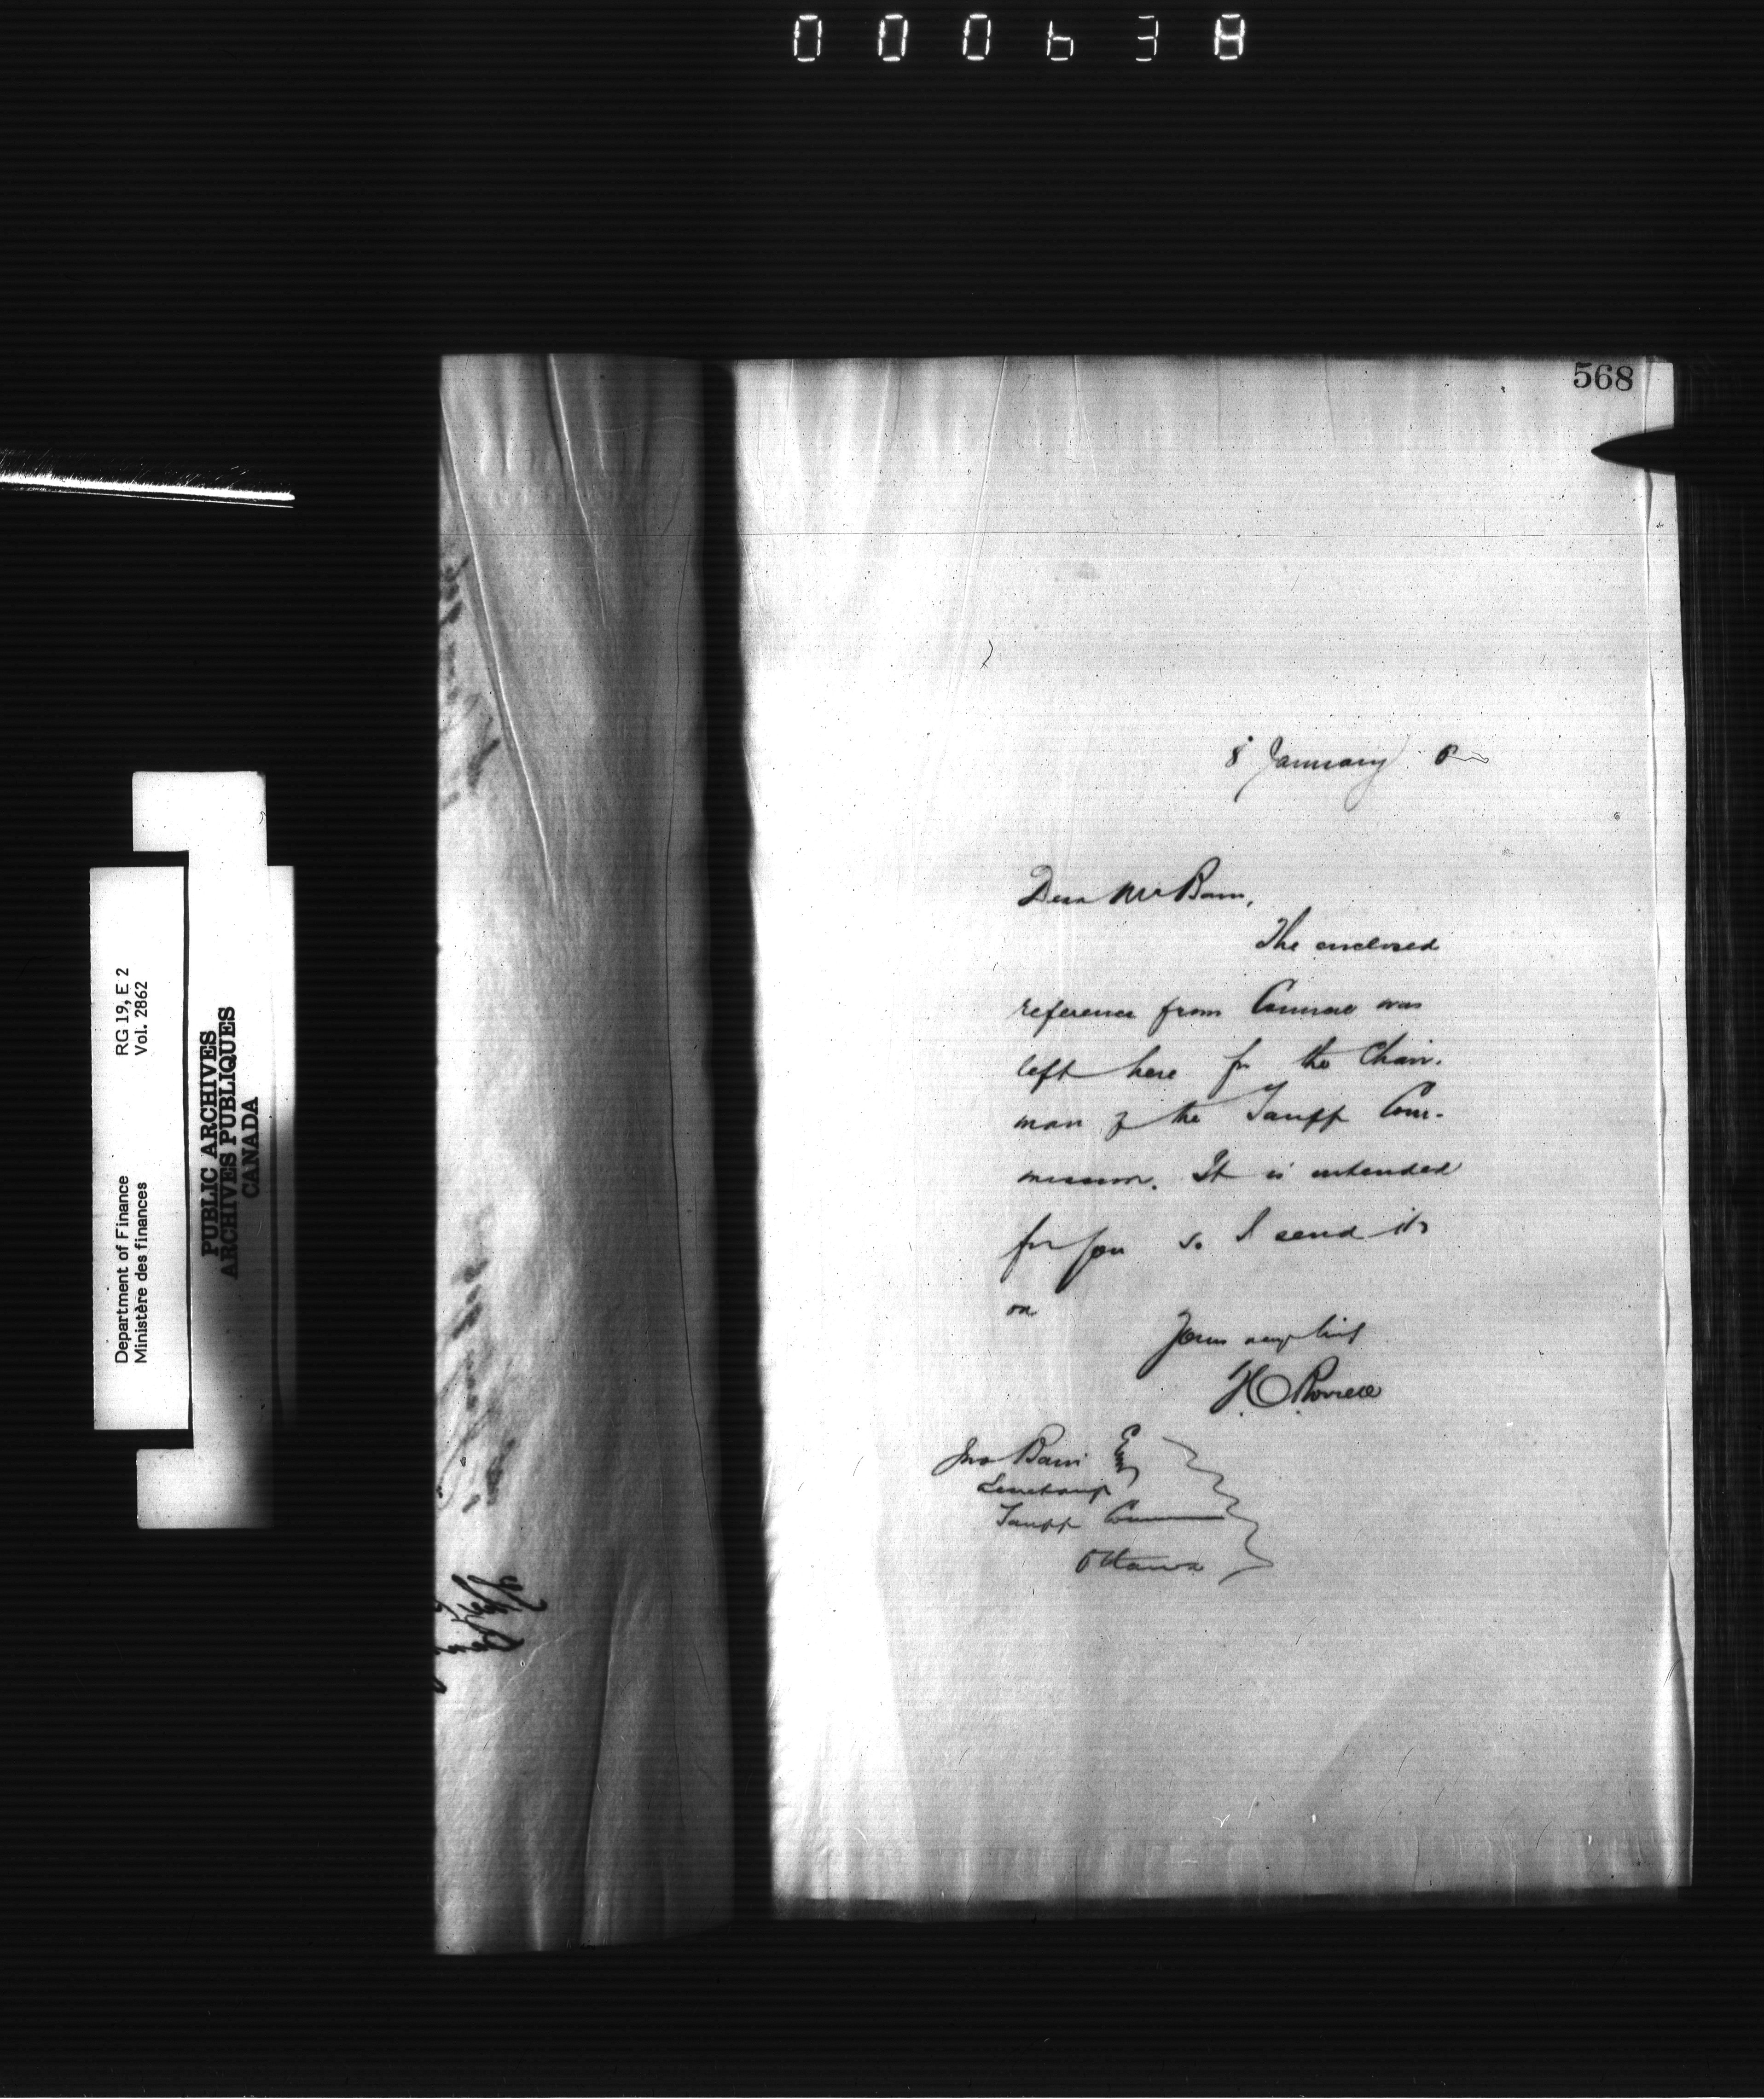 000638
568
8 January
Dear Mr Bain,
The enclosed
reference from Council was
left here for the Chair-
man of the Tariff Com-
mission. It is intended
for you so I send it
on
Yours very truly
Jno Bain Esq
Secretary
Tariff Commission
Ottawa
Department of Finance RG 19, E 2
Ministère des finances Vol. 2862
PUBLIC ARCHIVES
ARCHIVES PUBLIQUES
CANADA